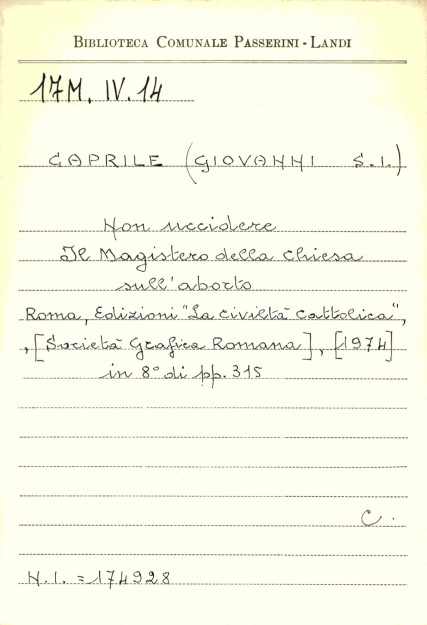 BIBLIOTECA COMUNALE PASSERINI - LANDI
17M. IV. 14
CAPRILE (GIOVANNI S.I.)
Non uccidere
Il Magistero della Chiesa
sull'aborto
Roma, Edizioni "La civiltà cattolica",
, [Società Grafica Romana], [1974]
in 8° di pp. 315
C.
N.I. = 174928